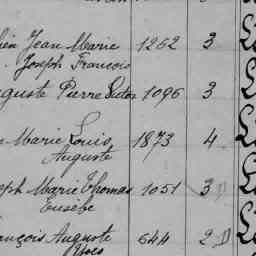 Jean Marie 1262 3
Joseph François
Auguste Pierre 1096 3
Marie Louis 1873 4
Auguste
Joseph Marie Thomas 1051 3 D
Eusèbe
François Auguste 644 2 D
Yves